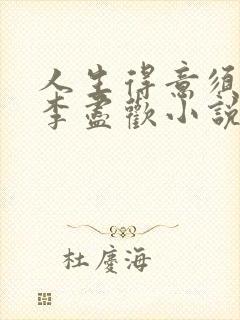 人生得意须
李盡歡小說
杜慶海